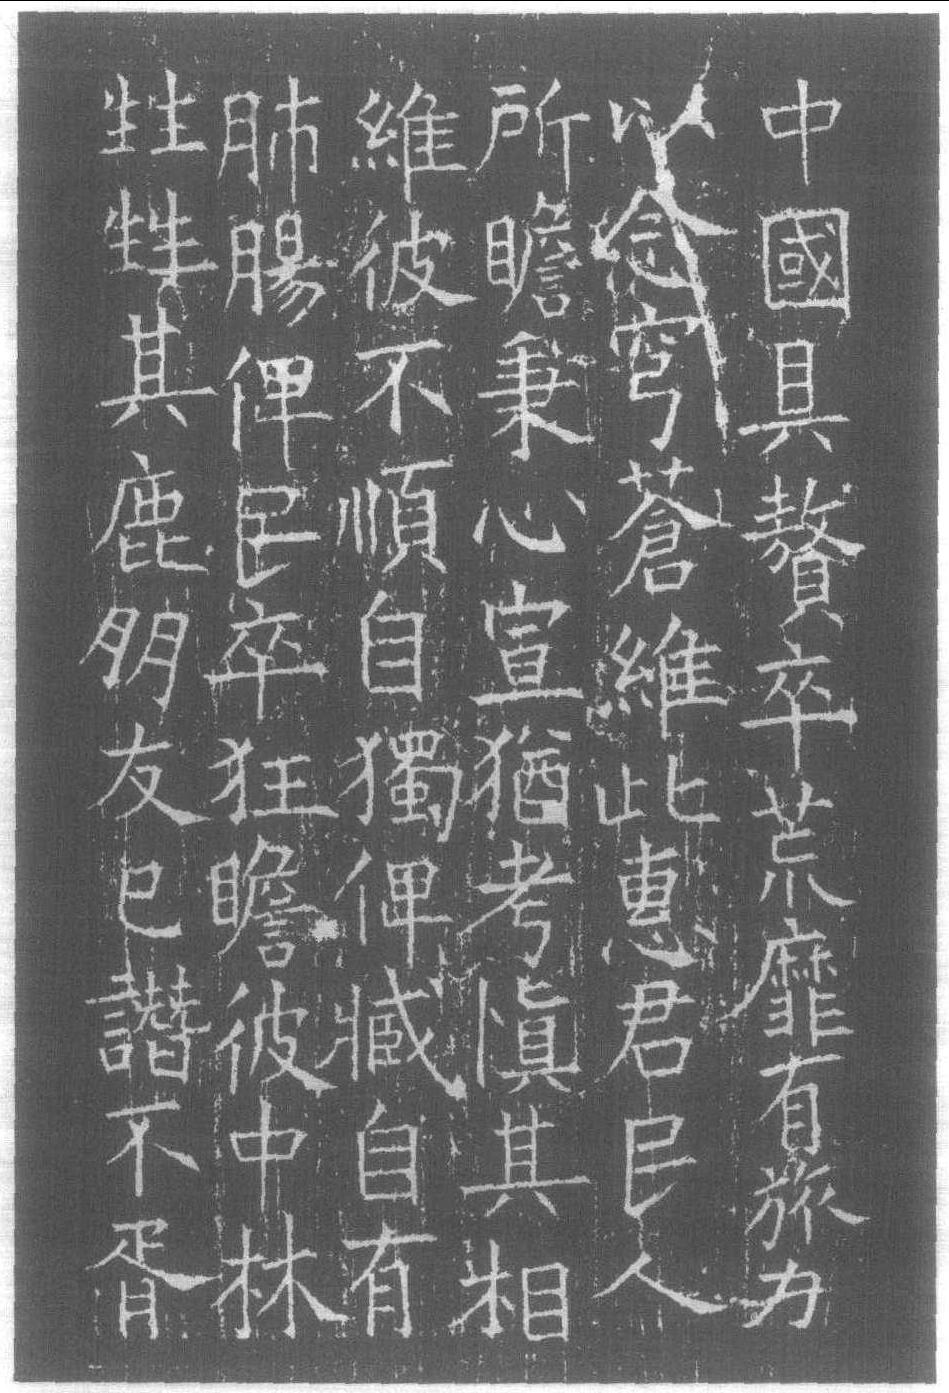 中國具贅卒荒靡有旅力
以念穹蒼維此惠君民人
所瞻秉心宣猶考愼其相
維彼不順自獨俾臧自有
肺腸俾民卒狂瞻彼中林
甡甡其鹿朋友已譖不胥